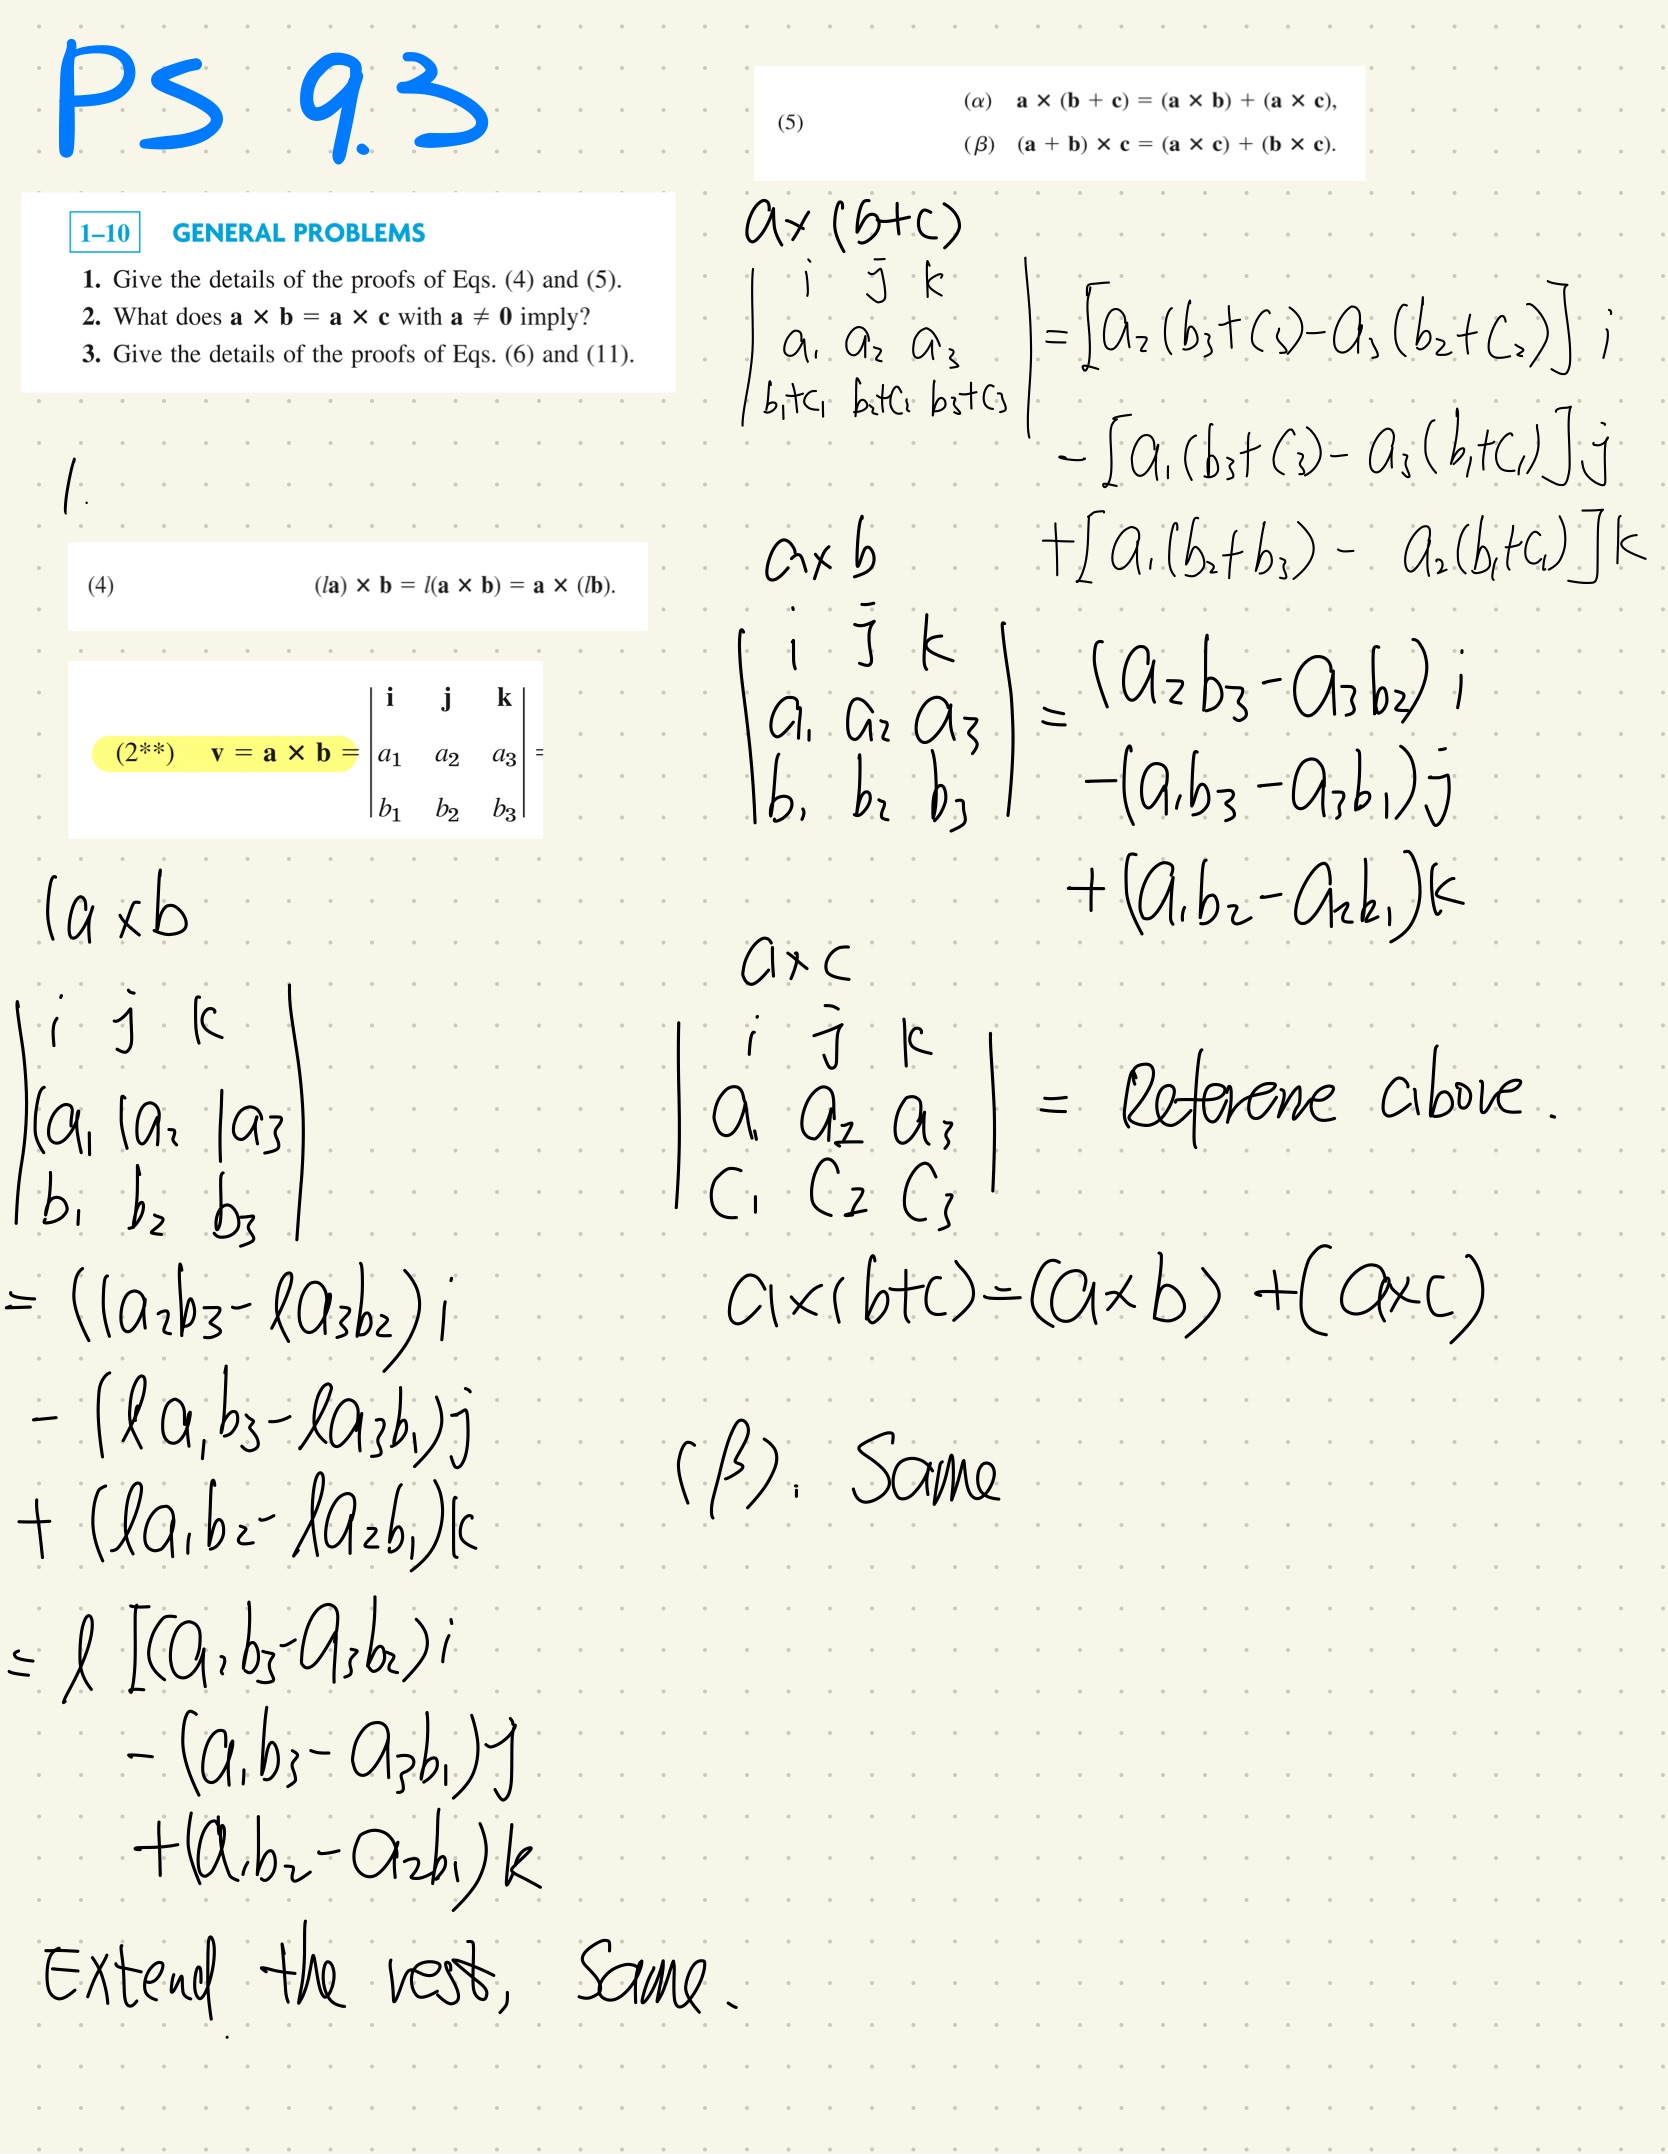 PS 9.3
1–10 GENERAL PROBLEMS
1. Give the details of the proofs of Eqs. (4) and (5).
2. What does a × b = a × c with a ≠ 0 imply?
3. Give the details of the proofs of Eqs. (6) and (11).
1.
(4) (la) × b = l(a × b) = a × (lb).
i j k
(2**) v = a × b = a₁ a₂ a₃ =
b₁ b₂ b₃
la × b
i j k
la₁ la₂ la₃
b₁ b₂ b₃
= (la₂b₃ - la₃b₂) i
- (la₁b₃ - la₃b₁) j
+ (la₁b₂ - la₂b₁) k
= l [(a₂b₃ - a₃b₂) i
- (a₁b₃ - a₃b₁) j
+ (a₁b₂ - a₂b₁) k
Extend the rest, Same.
(5)
(α) a × (b + c) = (a × b) + (a × c),
(β) (a + b) × c = (a × c) + (b × c).
a × (b+c)
i j k
a₁ a₂ a₃ = [a₂(b₃+c₃) - a₃(b₂+c₂)] i
b₁+c₁ b₂+c₂ b₃+c₃
- [a₁(b₃+c₃) - a₃(b₁+c₁)] j
+ [a₁(b₂+b₃) - a₂(b₁+c₁)] k
a × b
i j k
a₁ a₂ a₃ = (a₂b₃ - a₃b₂) i
b₁ b₂ b₃
- (a₁b₃ - a₃b₁) j
+ (a₁b₂ - a₂b₁) k
a × c
i j k
a₁ a₂ a₃ = Referene above.
c₁ c₂ c₃
a × (b+c) = (a × b) + (a × c)
(β). Same